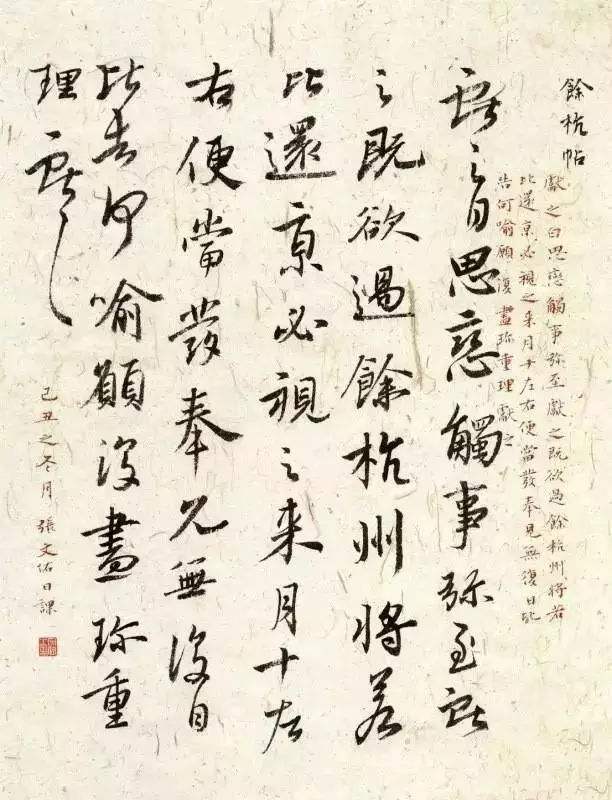 餘杭帖
獻之白思戀觸事弥至獻之既欲過餘杭州將若
比還京必視之来月十左右便當發奉見無復日比
告何喻願復盡珎重理獻之
獻之白思戀觸事弥至獻
之既欲過餘杭州將若
比還京必視之来月十左
右便當發奉見無復日
比告何喻願復盡珎重
理獻之
己丑之冬月張文佑日課